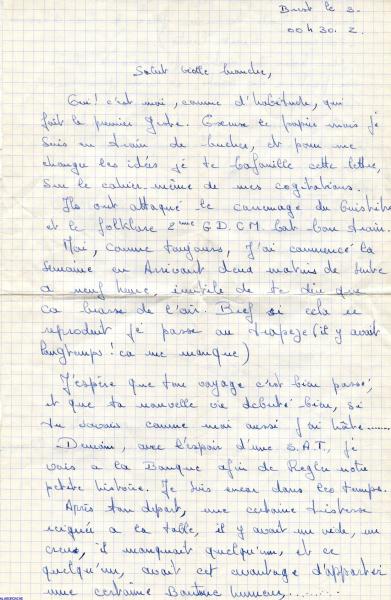 Brest le 3.
00h30. Z.
Salut vieille branche,
Oui! c'est moi, comme d'habitude, qui
fait le premier geste. Excuse le papier mais je
suis en train de bucher, et pour me
changer les idées je te bafouille cette lettre,
sur le cahier même de mes cogitations.
Ils ont attaqué le carénage du Guistière
et le folklore 2ème G.D.CM bat bon train.
Moi, comme toujours, j'ai commencé la
semaine en arrivant deux matins de suite
a neuf heure, inutile de te dire que
ca brasse de l'air. Bref si cela se
reproduit je passe au trapeze (il y avait
longtemps! ca me manque)
J'espère que ton voyage c'est bien passé,
et que ta nouvelle vie debute bien, si
tu savais comme moi aussi j'ai hâte........
Demain, avec l'espoir d'une S.A.T., je
vais a la Banque afin de Regler notre
petite histoire. Je suis encor dans les temps.
Après ton depart, une certaine tristesse
regnée a la table, il y avait un vide, un
creux, il manquait quelqu'un, et ce
quelqu'un, avait cet avantage d'apporter
une certaine Bonne humeur,........